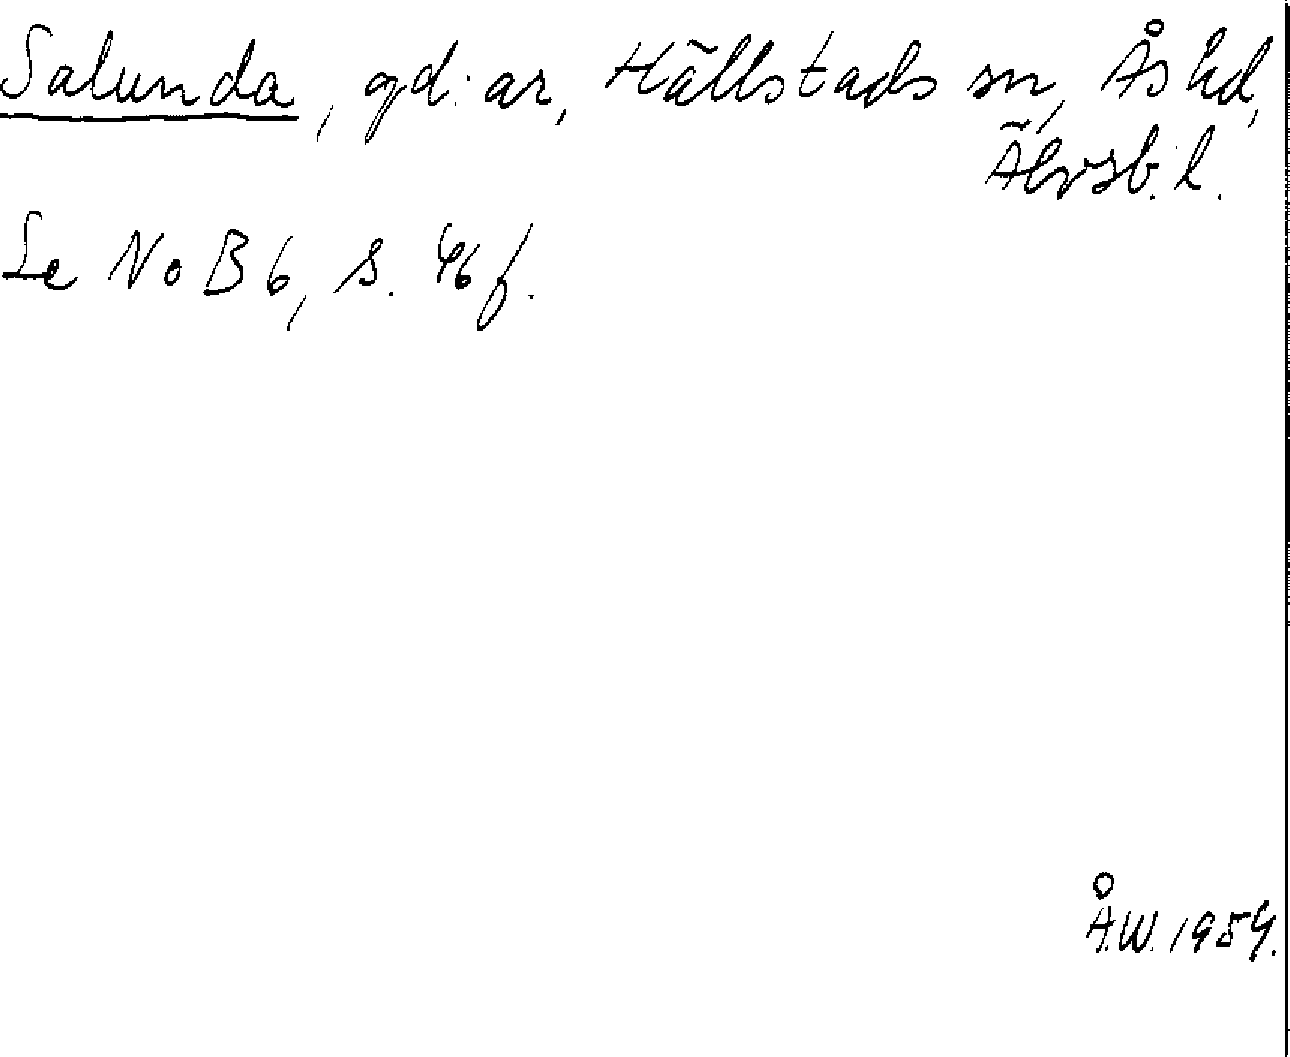 Salunda, gd:ar, Hällstads sn, Ås hd,
Älvsb. l.
Se NoB 6, s. 46 f.
Å.W. 1954.